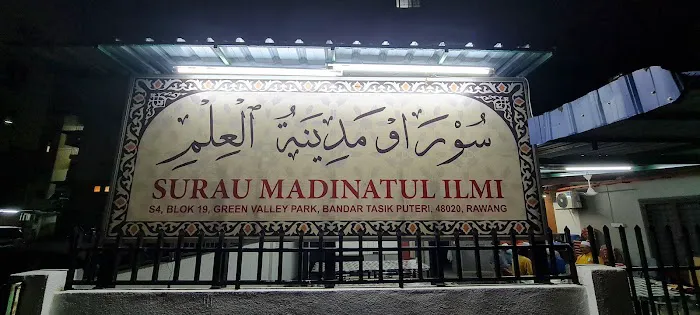 سوراو مَدِيْنَةُ ٱلْعِلْمِ
SURAU MADINATUL ILMI
S4, BLOK 19, GREEN VALLEY PARK, BANDAR TASIK PUTERI, 48020, RAWANG